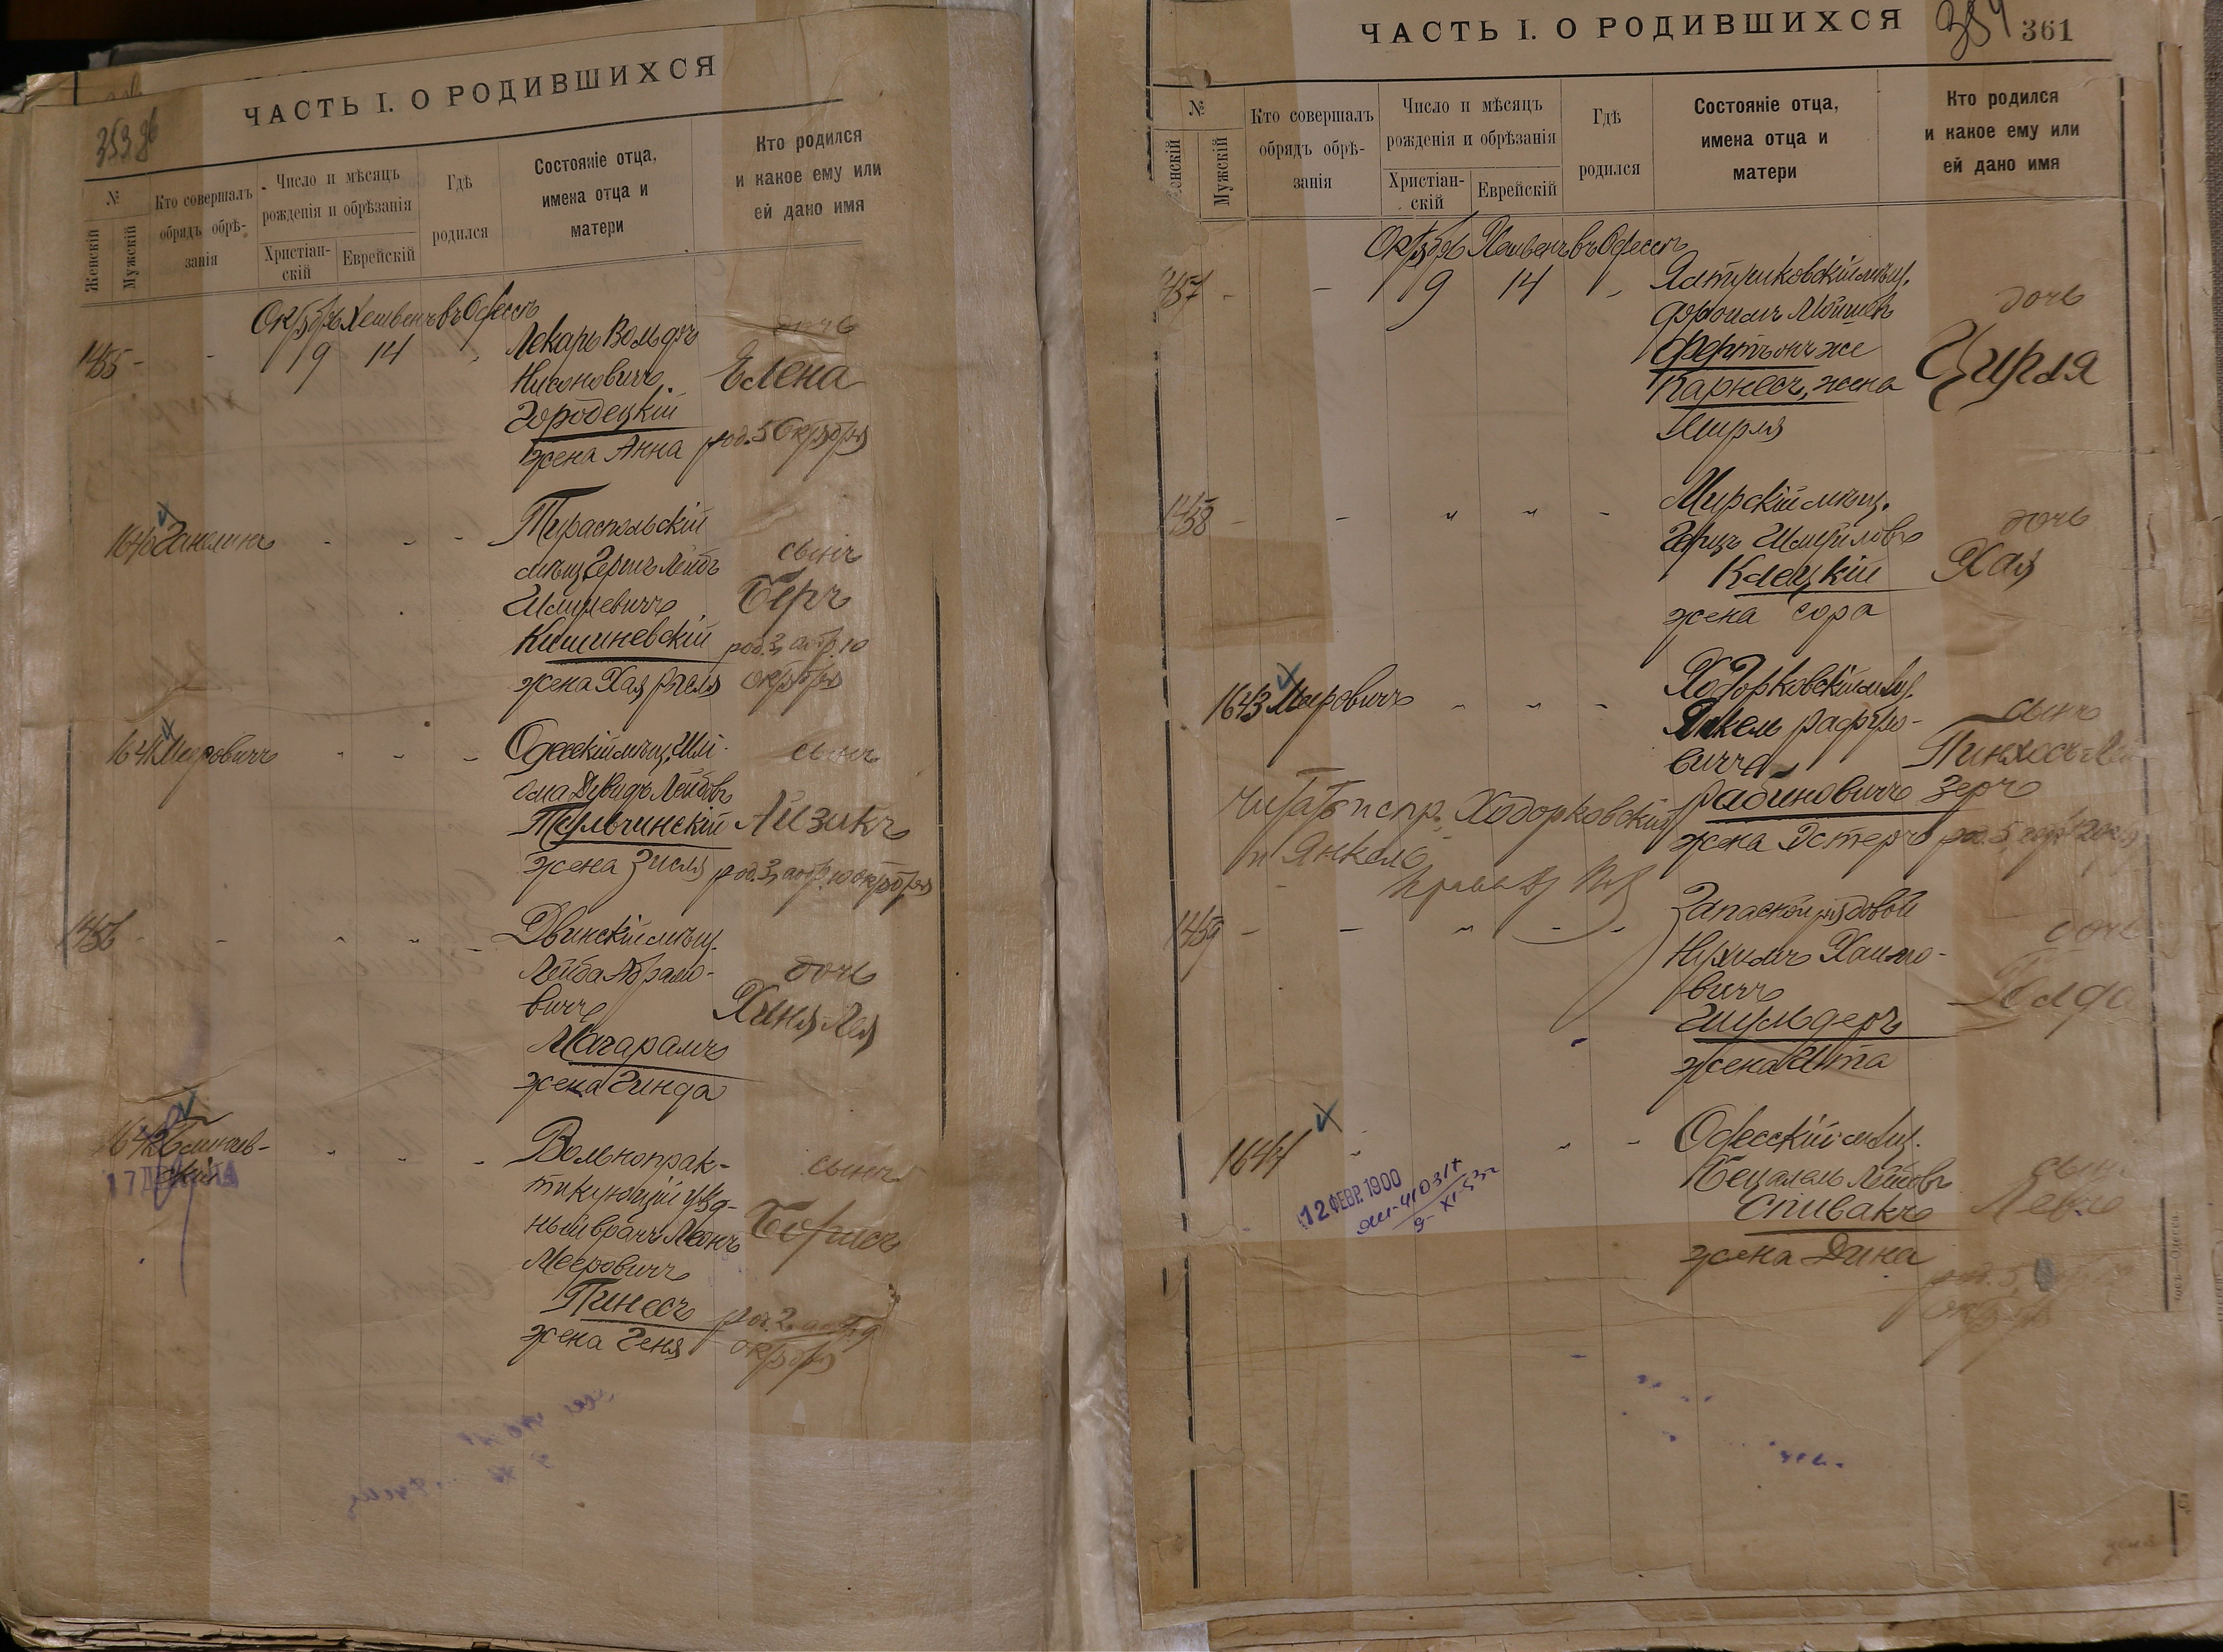 ЧАСТЬ I. О РОДИВШИХСЯ
353
№
Женскій
Мужскій
Кто совершалъ
обрядъ обрѣ-
занія
Число и мѣсяцъ
рожденія и обрѣзанія
Христіан-
скій
Еврейскій
Гдѣ
родился
Состояніе отца,
имена отца и
матери
Кто родился
и какое ему или
ей дано имя
Октября Хешвенъ въ Одессѣ
1455 - - 9 14 „
Лекарь Вольфъ
Нисоновичъ
Городецкій
жена Анна
дочь
Елена
род. 5 Октября
1640
Тираспольскій
мѣщ. Герш Лейбъ
Шмулевичъ
Кишиневскій
жена Хая Рухля
сынъ
Беръ
род. 3, обр. 10
октября
1641 Меровичъ
Одесскій мѣщ. Шлі-
ома Дувидъ Лейбовъ
Тульчинскій
жена Зисля
сынъ
Айзикъ
род. 3, обр. 10 октября
1456
Двинскій мѣщ.
Лейба Абрамо-
вичъ
Магарамъ
жена Гинда
дочь
Хиня Лея
1642
17 ДЕК
Вольнопрак-
тикующій уѣзд-
ный врачъ Леонъ
Мееровичъ
Пинесъ
жена Геня
сынъ
Борисъ
род. 2, обр. 9
октября
ЧАСТЬ I. О РОДИВШИХСЯ
354 361
№
Женскій
Мужскій
Кто совершалъ
обрядъ обрѣ-
занія
Число и мѣсяцъ
рожденія и обрѣзанія
Христіан-
скій
Еврейскій
Гдѣ
родился
Состояніе отца,
имена отца и
матери
Кто родился
и какое ему или
ей дано имя
Октября Хешвенъ въ Одессѣ
1457 - - 9 14 „
Ялтушковскій мѣщ.
Фроимъ Мошков
Фертъ онъ же
Карнесъ, жена
Ширля
дочь
Цирля
1458
Мирскій мѣщ.
Герцъ Шмуйловъ
Клецкій
жена Сора
дочь
Хая
1643 Меровичъ
Ходорковскій мѣщ.
Янкель Рафуло-
вичъ
Рабиновичъ
жена Эстеръ
сынъ
Пинхосъ
Зеръ
читать испр. Ходорковскій
и Янкель
1459
Запасной рядовой
Нухимъ Хаимо-
вичъ
Шульдеръ
жена Ита
дочь
Голда
1644
12 ФЕВР. 1900
Одесскій мѣщ.
Бецалель Лейбовъ
Спивакъ
жена Дина
сынъ
Левъ
род. 5,
октября